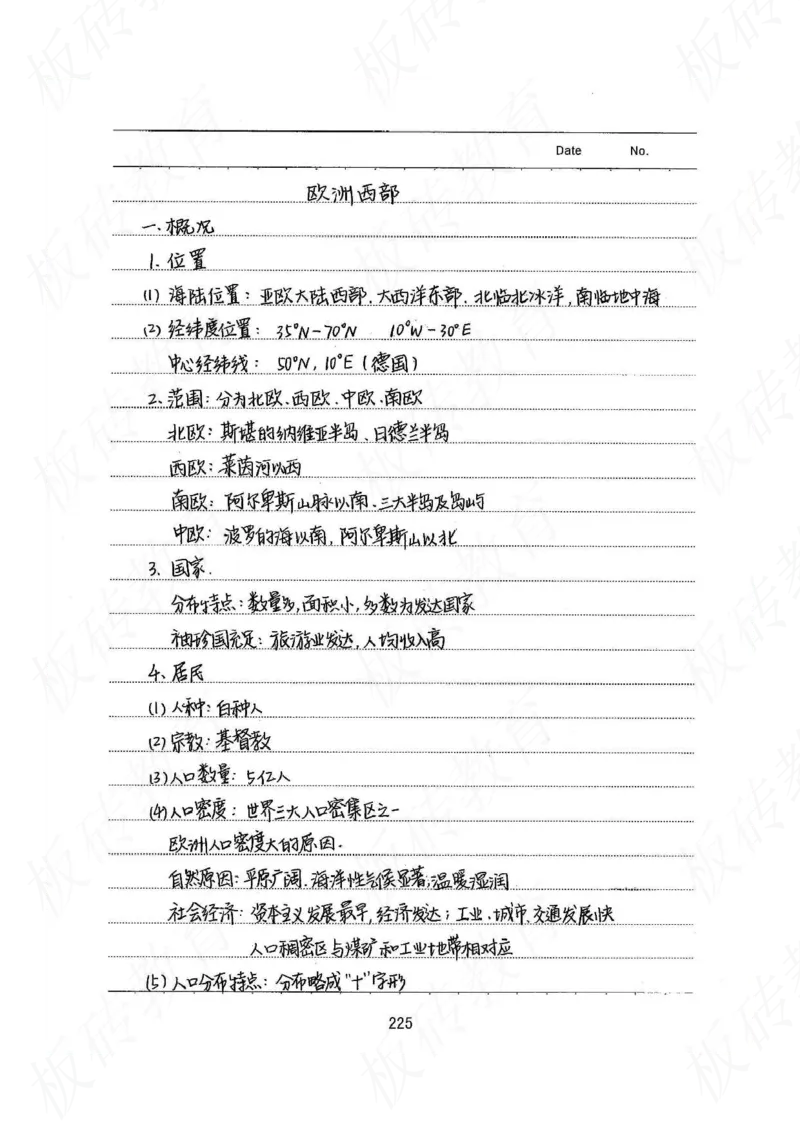 Date No.
欧洲西部
一、概况
1. 位置
(1) 海陆位置：亚欧大陆西部、大西洋东部、北临北冰洋，南临地中海
(2) 经纬度位置：35°N-70°N 10°W-30°E
中心经纬线：50°N，10°E（德国）
2. 范围：分为北欧、西欧、中欧、南欧
北欧：斯堪的纳维亚半岛、日德兰半岛
西欧：莱茵河以西
南欧：阿尔卑斯山脉以南、三大半岛及岛屿
中欧：波罗的海以南，阿尔卑斯山以北
3. 国家.
分布特点：数量多，面积小，多数为发达国家
袖珍国充足：旅游业发达，人均收入高
4. 居民
(1) 人种：白种人
(2) 宗教：基督教
(3) 人口数量：5亿人
(4) 人口密度：世界三大人口密集区之一
欧洲人口密度大的原因.
自然原因：平原广阔、海洋性气候显著；温暖湿润
社会经济：资本主义发展最早，经济发达；工业、城市、交通发展快
人口稠密区与煤矿和工业地带相对应
(5) 人口分布特点：分布略成"十"字形
225
板砖教育